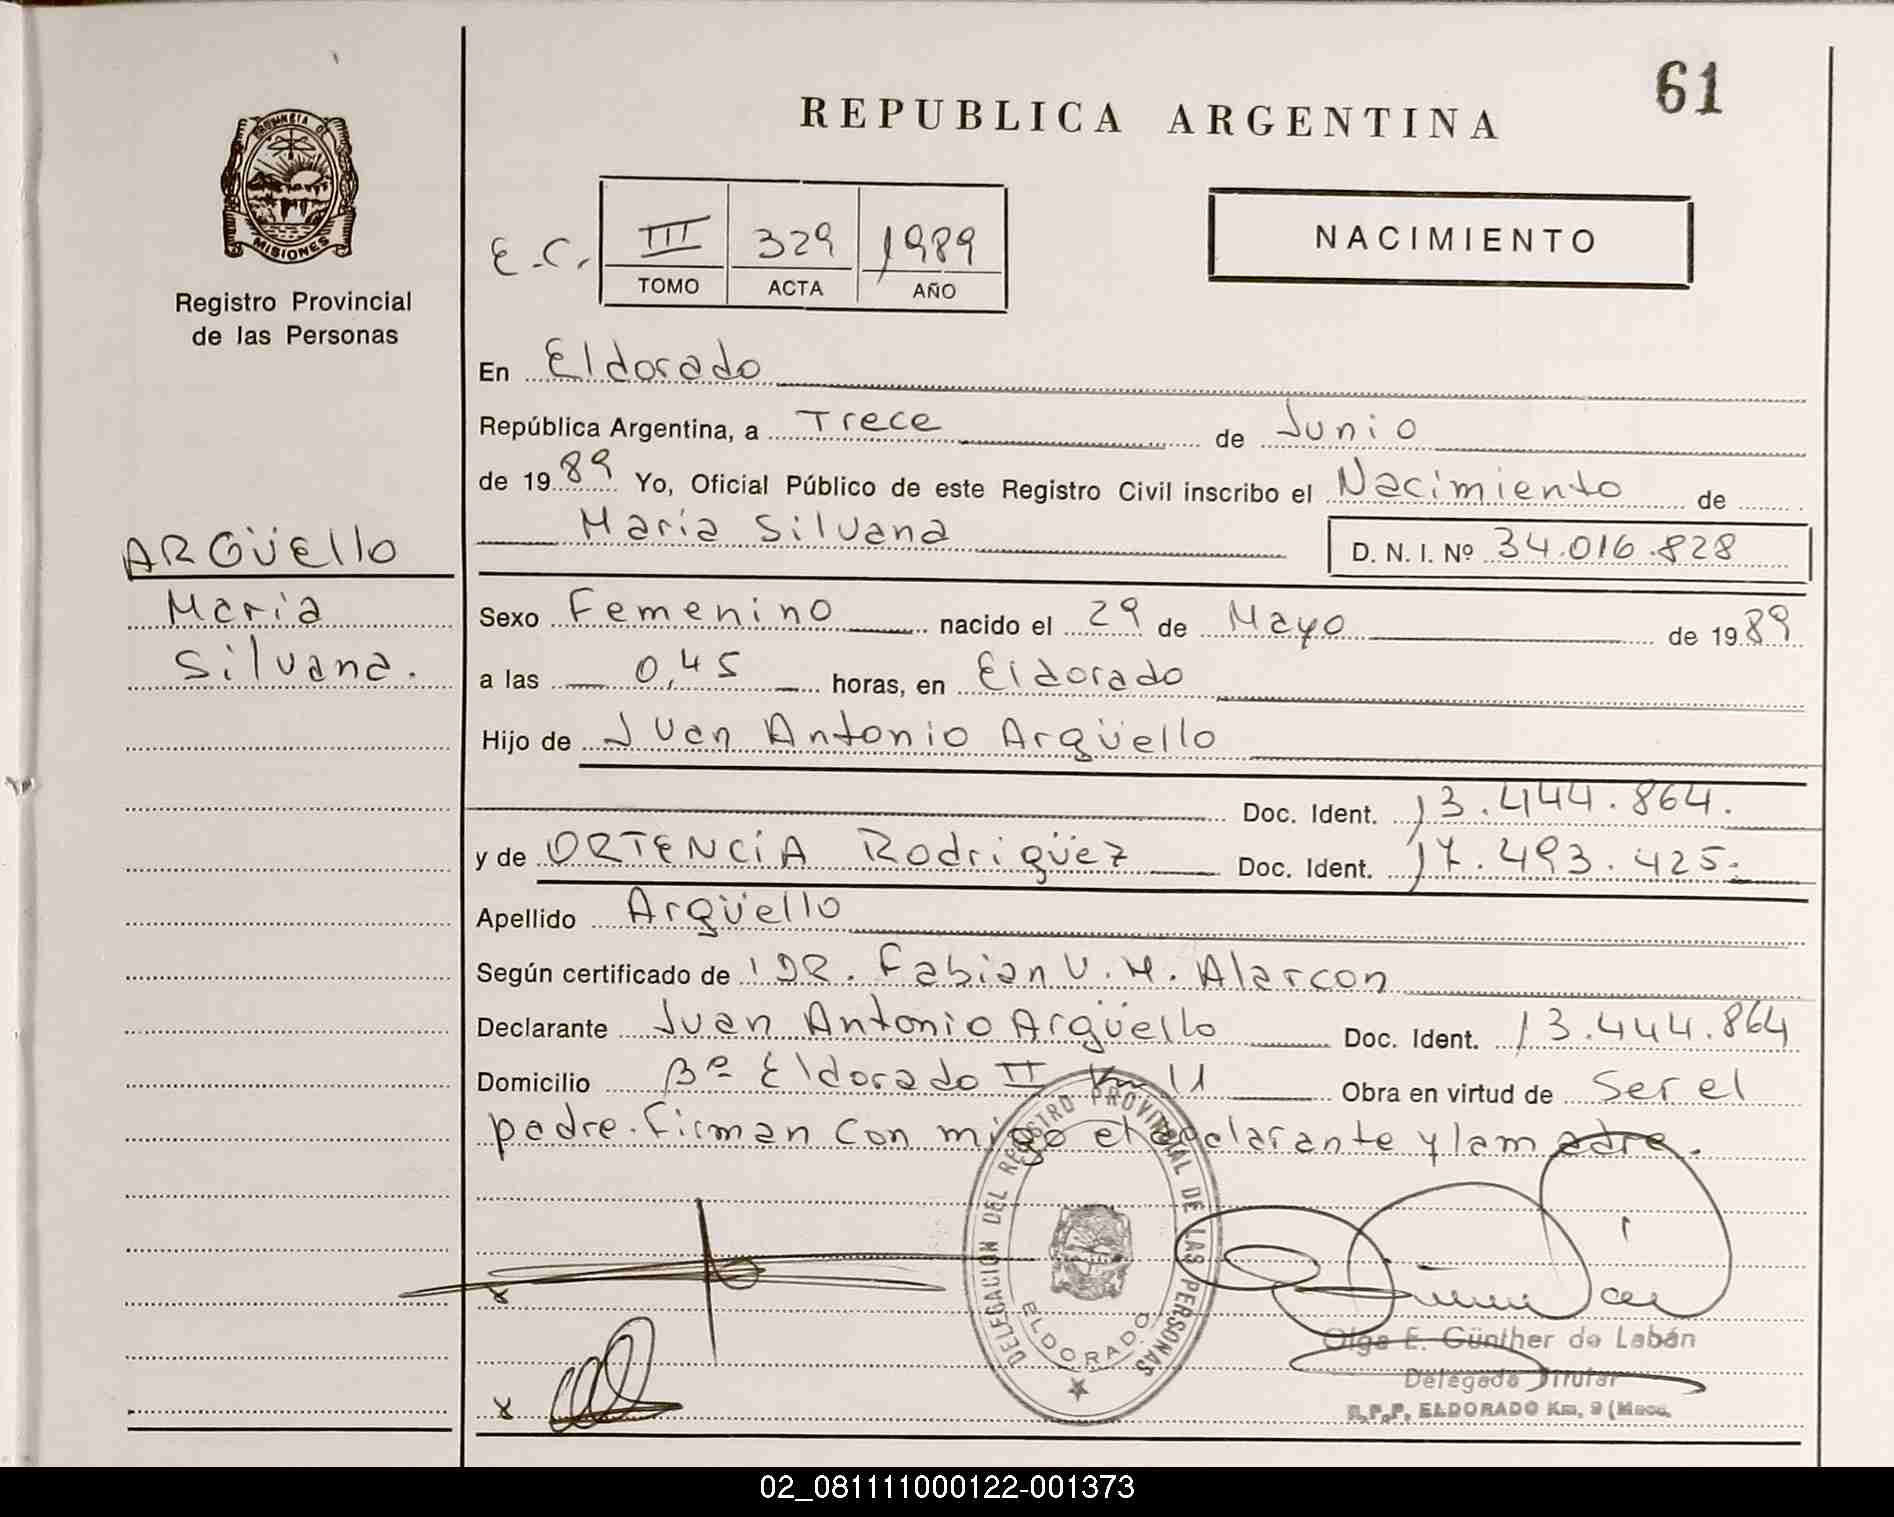 61
REPUBLICA ARGENTINA
PROVINCIA DE
MISIONES
Registro Provincial
de las Personas
E.C. III 329 1989
TOMO ACTA AÑO
NACIMIENTO
En Eldorado
República Argentina, a Trece de Junio
de 1989 Yo, Oficial Público de este Registro Civil inscribo el Nacimiento de
Maria Silvana
D. N. I. Nº 34.016.828
ARGÜEllo
Maria
Silvana.
Sexo Femenino nacido el 29 de Mayo de 1989
a las 0,45 horas, en Eldorado
Hijo de Juan Antonio Argüello
Doc. Ident. 13.444.864.
y de ORTENCiA Rodrigüez Doc. Ident. 17.493.425.
Apellido Argüello
Según certificado de DR. Fabian V. M. Alarcon
Declarante Juan Antonio Argüello Doc. Ident. 13.444.864
Domicilio Bº Eldorado II Km 11 Obra en virtud de Ser el
padre. Firman con migo el declarante y la madre.
DELEGACION DEL REGISTRO PROVINCIAL DE LAS PERSONAS
ELDORADO
x
x
Olga E. Günther de Labán
Delegada Titular
R.P.P. ELDORADO Km. 9 (Mnes.
02_081111000122-001373